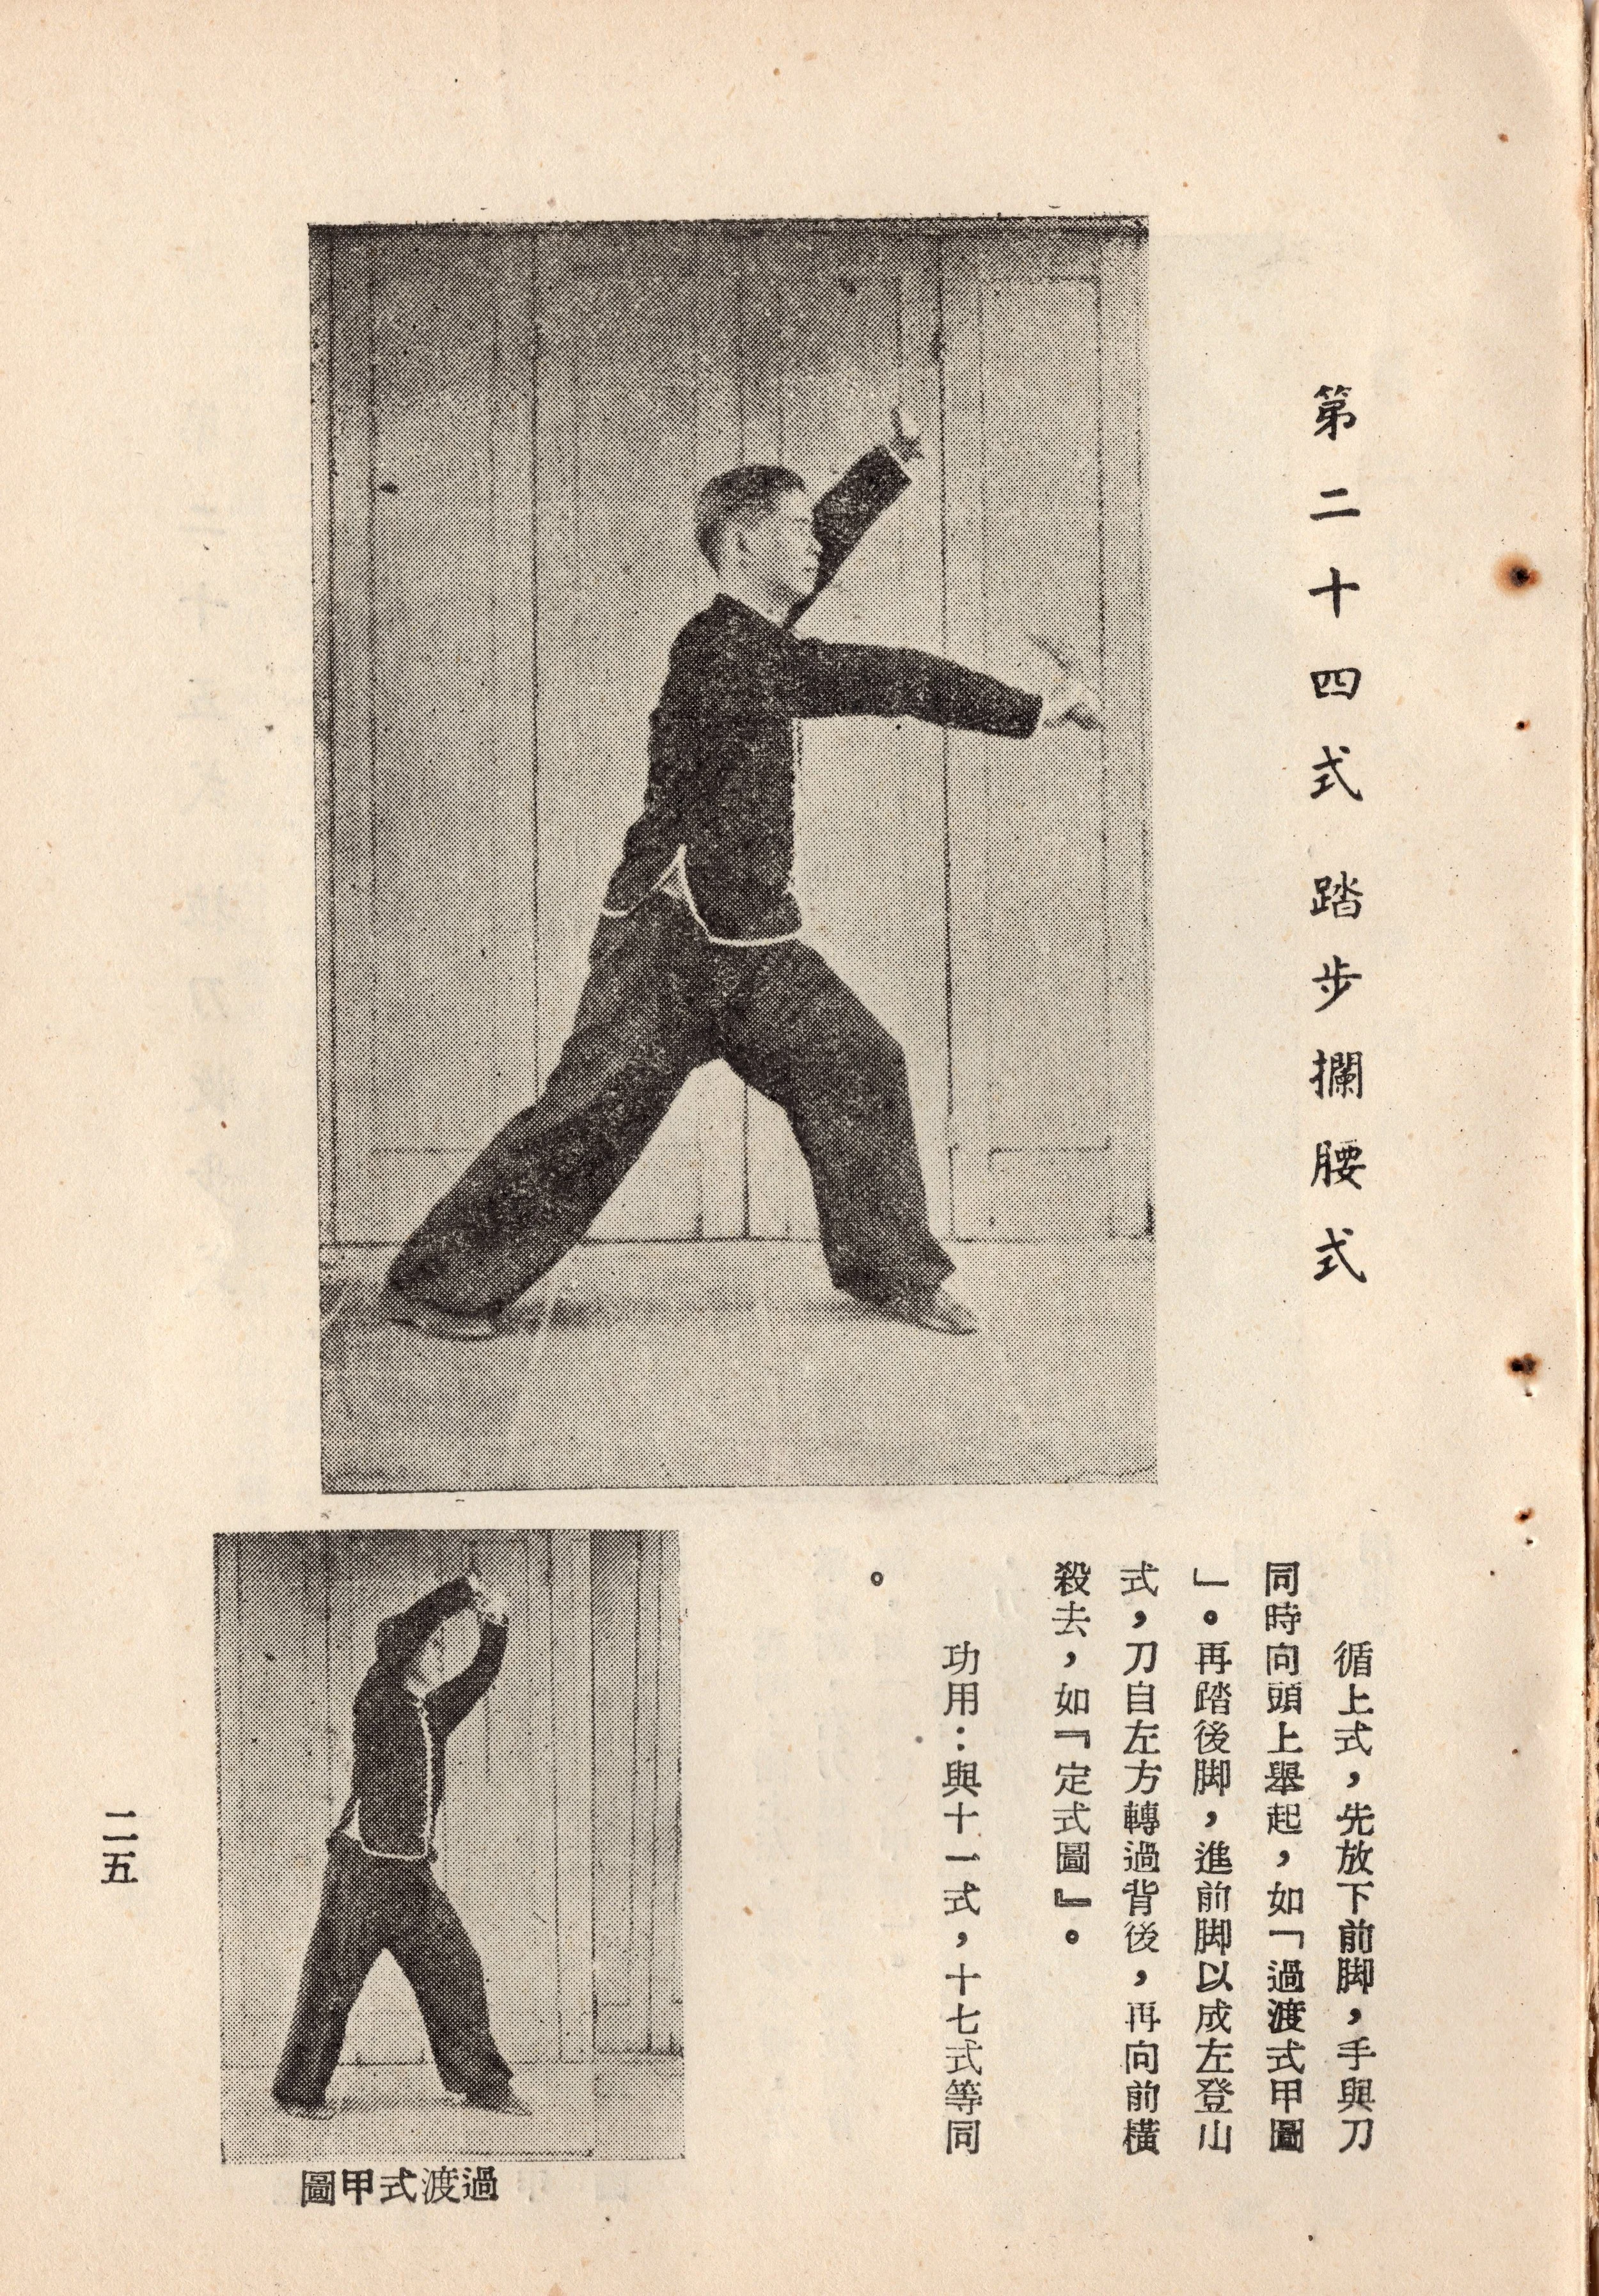 第二十四式 踏步攔腰式
循上式，先放下前脚，手與刀
同時向頭上舉起，如「過渡式甲圖
」。再踏後脚，進前脚以成左登山
式，刀自左方轉過背後，再向前橫
殺去，如『定式圖』。
功用：與十一式，十七式等同
。
圖甲式渡過
二五